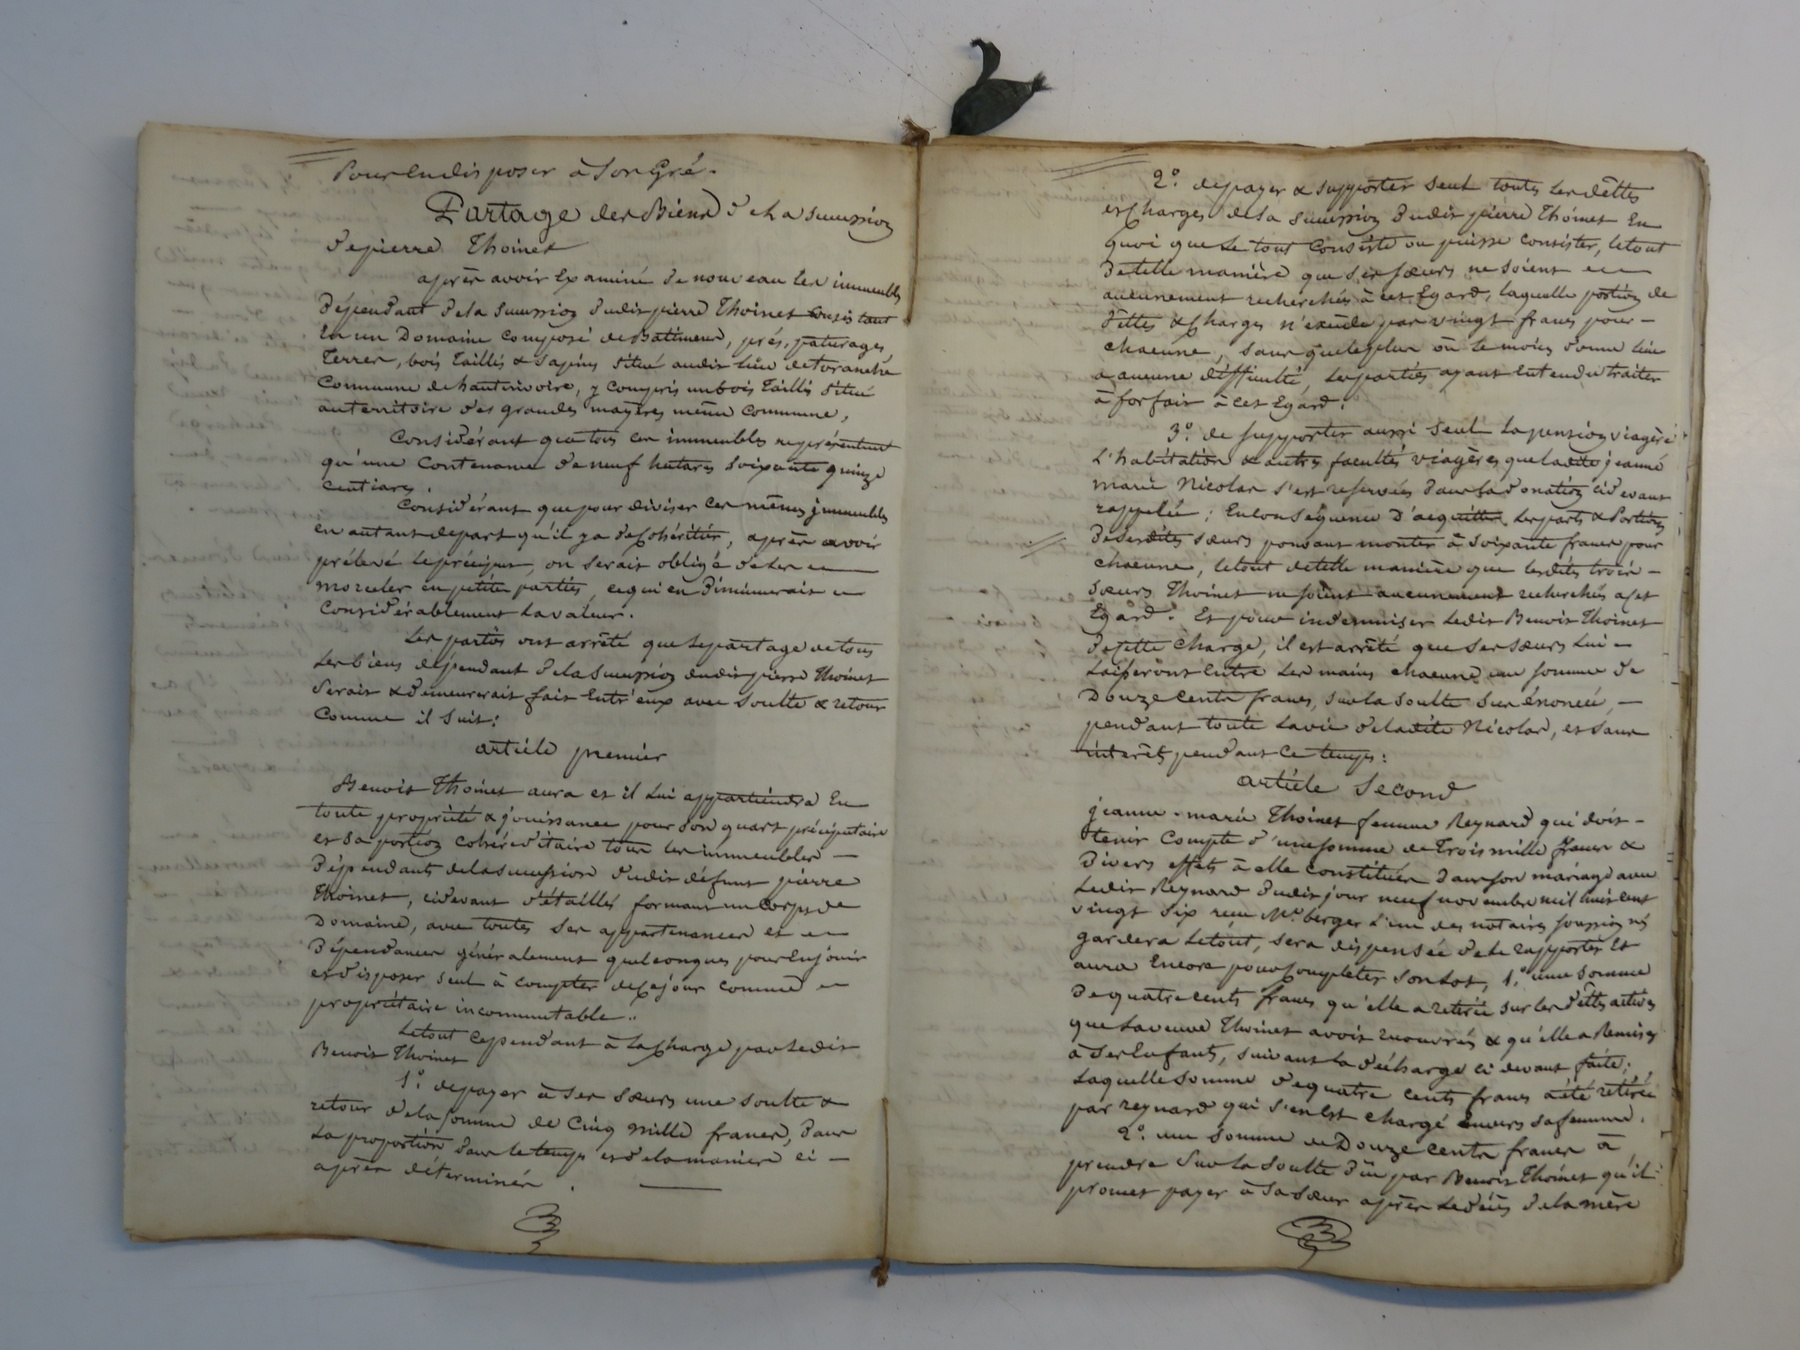 Pour en disposer à son Gré.
Partage des Biens de la succession
de pierre Thoinet
après avoir Examiné de nouveau les immeubles
dépendant de la succession dudit pierre Thoinet consistant
En un Domaine Composé de Batiments, prés, paturages
Terres, bois Taillis & sapins situé audit lieu de
Commune de hauterivoire, y compris un bois Taillis situé
au territoire des grandes mayères même Commune,
Considérant que tous ces immeubles représentent
qu'une Contenance de neuf hectares soixante quinze
centiares.
Considérant que pour diviser ces mêmes immeubles
en autant de part qu'il y a de Cohéritier, après avoir
prélevé le préciput, on serait obligé de les
morceler en petite parties, ce qui en Diminuerait
Considérablement la valeur.
Les parties ont arrêté que le partage de tous
les biens dépendant de la succession dudit pierre Thoinet
serait & demeurerait fait Entr'eux avec soulte & retour
Comme il suit:
article premier
Benoit Thoinet aura et il lui appartiendra En
toute propriété & jouissance pour son quart préciputaire
et sa portion cohéréditaire tous les immeubles —
dépendants de la succession dudit défunt pierre
Thoinet, cidevant détaillés formant un Corps de
Domaine, avec toutes ses appartenances et
Dépendances généralement quelconques pour En jouir
et disposer seul à compter de ce jour comme
propriétaire incommutable..
Le tout Cependant à la Charge par ledit
Benoit Thoinet
1.° de payer à ses sœurs une soulte &
retour de la somme de Cinq mille francs, dans
la proportion dans le temps et de la maniere ci —
après déterminée.
2.° de payer & supporter seul toutes les dêttes
et Charges de la succession dudit pierre Thoinet En
quoi que le tout Consiste ou puisse consister, le tout
de telle manière que ses sœurs ne soient
aucunement recherchés à cet Egard, laquelle portion de
dêttes & Charges n'excède par vingt francs pour —
chacune, sans que le plus ou le moins donne lieu
a aucune difficulté, les parties ayant Entendu traiter
à forfait à cet Egard.
3.° de supporter aussi seul la pension viagère
l'habitation & autres facultés viagères que ladite jeanne
marie Nicolas s'est reservées dans la donation cidevant
rappelée; En conséquence d'acquitter les parts & Portions
de sesdites sœurs pouvant monter à soixante francs pour
chacune, le tout de telle manière que lesdits trois —
sœurs Thoinet ne soient aucunement recherchés à cet
Egard. Et pour indemniser ledit Benoit Thoinet
de cette Charge, il est arrêté que ses sœurs lui
laisseront Entre les mains chacune une somme de
Douze cents francs, sur la soulte sus énoncée, —
pendant toute la vie de ladite Nicolas, et sans
intérêts pendant ce temps:
article second
jeanne-marie Thoinet femme Reynard qui doit —
tenir Compte d'une somme de Trois mille francs &
divers effets à elle constituée dans son mariage avec
ledit Reynard dudit jour neuf novembre mil huit cent
vingt six reçu Me. berger l'un des notaires soussignés
gardera le tout, sera dispensée de le rapporter Et
aura Encore pour Completer son Lot, 1.° une somme
de quatre cents francs qu'elle a retirée sur les dêttes actives
que la veuve Thoinet avoit recouvrés & qu'elle a Remis
à ses Enfants, suivant la décharge ci devant faite;
laquelle somme de quatre cents francs a été retirée
par reynard qui s'en Est chargé Envers sa femme.
2.° une somme de Douze cents francs à
prendre sur la soulte dûe par Benoit Thoinet qu'il
promet payer à sa sœur après le décès de la mère